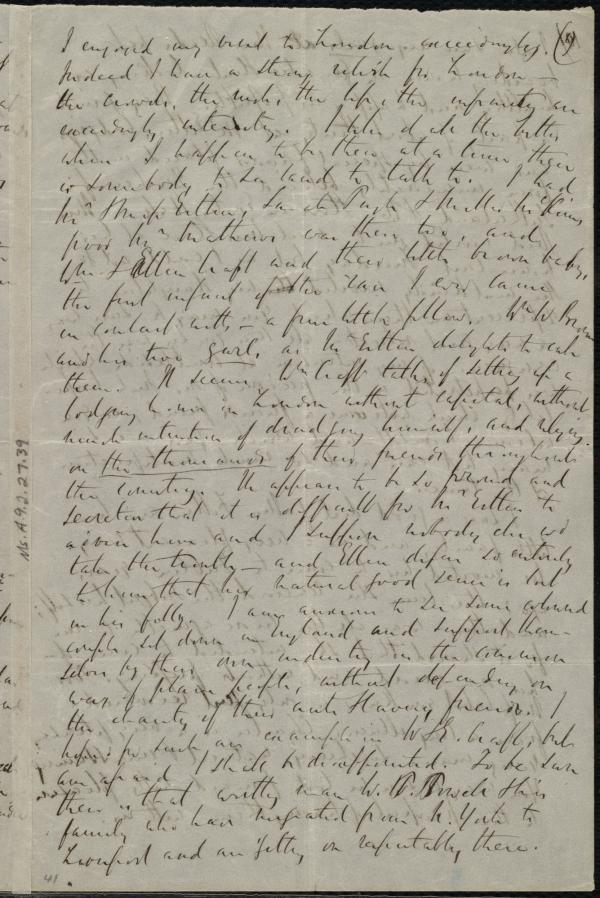 (9)
I enjoyed my visit to London exceedingly.
Indeed I have a strong relish for London —
the crowds, the noise, the life, the infinity are
exceedingly interesting. I like it all the better
when I happen to be there at a time there
is somebody to see and to talk to. I had
Mrs & Miss Estlin, Sarah Pugh & Miller McKims
poor Mrs Mathews was there too, and
Wm & Ellen Craft and their little brown baby,
the first infant of the race I ever came
in contact with — a fine little fellow. Wm W. Brown
and his two girls, as Mr Estlin delights to call
them. It seems Wm Craft talks of setting up a
lodging house in London without capital, without
much intention of drudging himself, and relying
on the thousands of their friends throughout
the country. He appears to be so proud and
secretive that it is difficult for Mr Estlin to
advise him and I suppose nobody else wd
take the trouble — and Ellen defers so entirely
to him that her natural good sense is lost
in his folly. I am anxious to see some coloured
couple set down in England and support them-
selves by their own industry in the common
way of plain people, without depending on
the charity of their anti slavery friends. I
hoped for such an example in W & E. Craft, but
am afraid I shall be disappointed. To be sure
there is that worthy man W. P. Powell & his
family who have migrated from N. York to
Liverpool and are getting on respectably there.
Ms. A. 9. 2. 27. 39
41